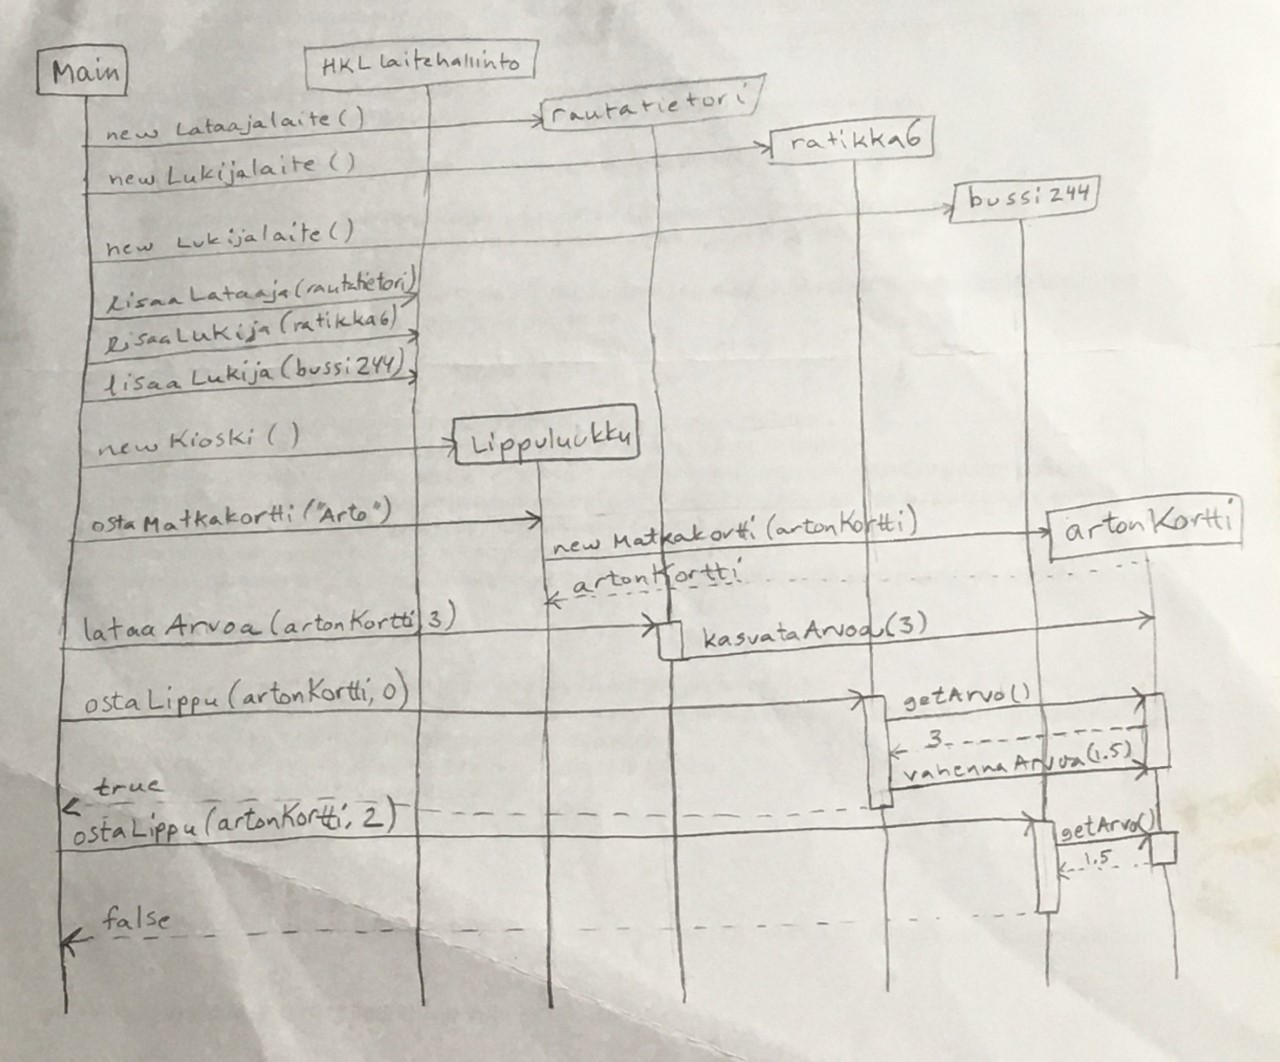 Main
HKLLaitehallinto
rautatietori
new Lataajalaite()
ratikka6
new Lukijalaite()
bussi244
new Lukijalaite()
lisaaLataaja(rautatietori)
lisaaLukija(ratikka6)
lisaaLukija(bussi244)
new Kioski()
Lippuluukku
ostaMatkakortti("Arto")
new Matkakortti(artonKortti)
artonKortti
artonKortti
lataaArvoa(artonKortti, 3)
kasvataArvoa(3)
ostaLippu(artonKortti, 0)
getArvo()
3
vahennaArvoa(1.5)
true
ostaLippu(artonKortti, 2)
getArvo()
1.5
false